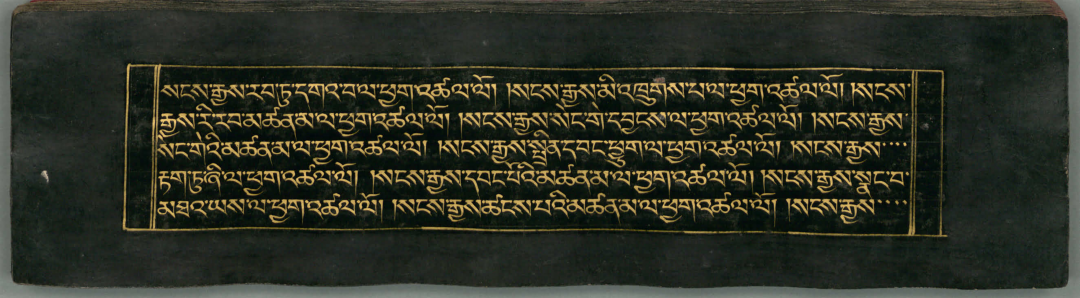 སངས་རྒྱས་རབ་ཏུ་དགའ་བ་ལ་ཕྱག་འཚལ་ལོ། །སངས་རྒྱས་མི་འཁྲུགས་པ་ལ་ཕྱག་འཚལ་ལོ། །སངས་
རྒྱས་རི་རབ་མཚན་མ་ལ་ཕྱག་འཚལ་ལོ། །སངས་རྒྱས་སེང་གེ་དབྱངས་ལ་ཕྱག་འཚལ་ལོ། །སངས་རྒྱས་
སེང་གེའི་མཚན་མ་ལ་ཕྱག་འཚལ་ལོ། །སངས་རྒྱས་སྤྲིན་དབང་ཕྱུག་ལ་ཕྱག་འཚལ་ལོ། །སངས་རྒྱས་་་་
རྟག་ཏུ་ཞི་ལ་ཕྱག་འཚལ་ལོ། །སངས་རྒྱས་དབང་པོའི་མཚན་མ་ལ་ཕྱག་འཚལ་ལོ། །སངས་རྒྱས་སྣང་བ་
མཐའ་ཡས་ལ་ཕྱག་འཚལ་ལོ། །སངས་རྒྱས་ཚངས་པའི་མཚན་མ་ལ་ཕྱག་འཚལ་ལོ། །སངས་རྒྱས་་་་་